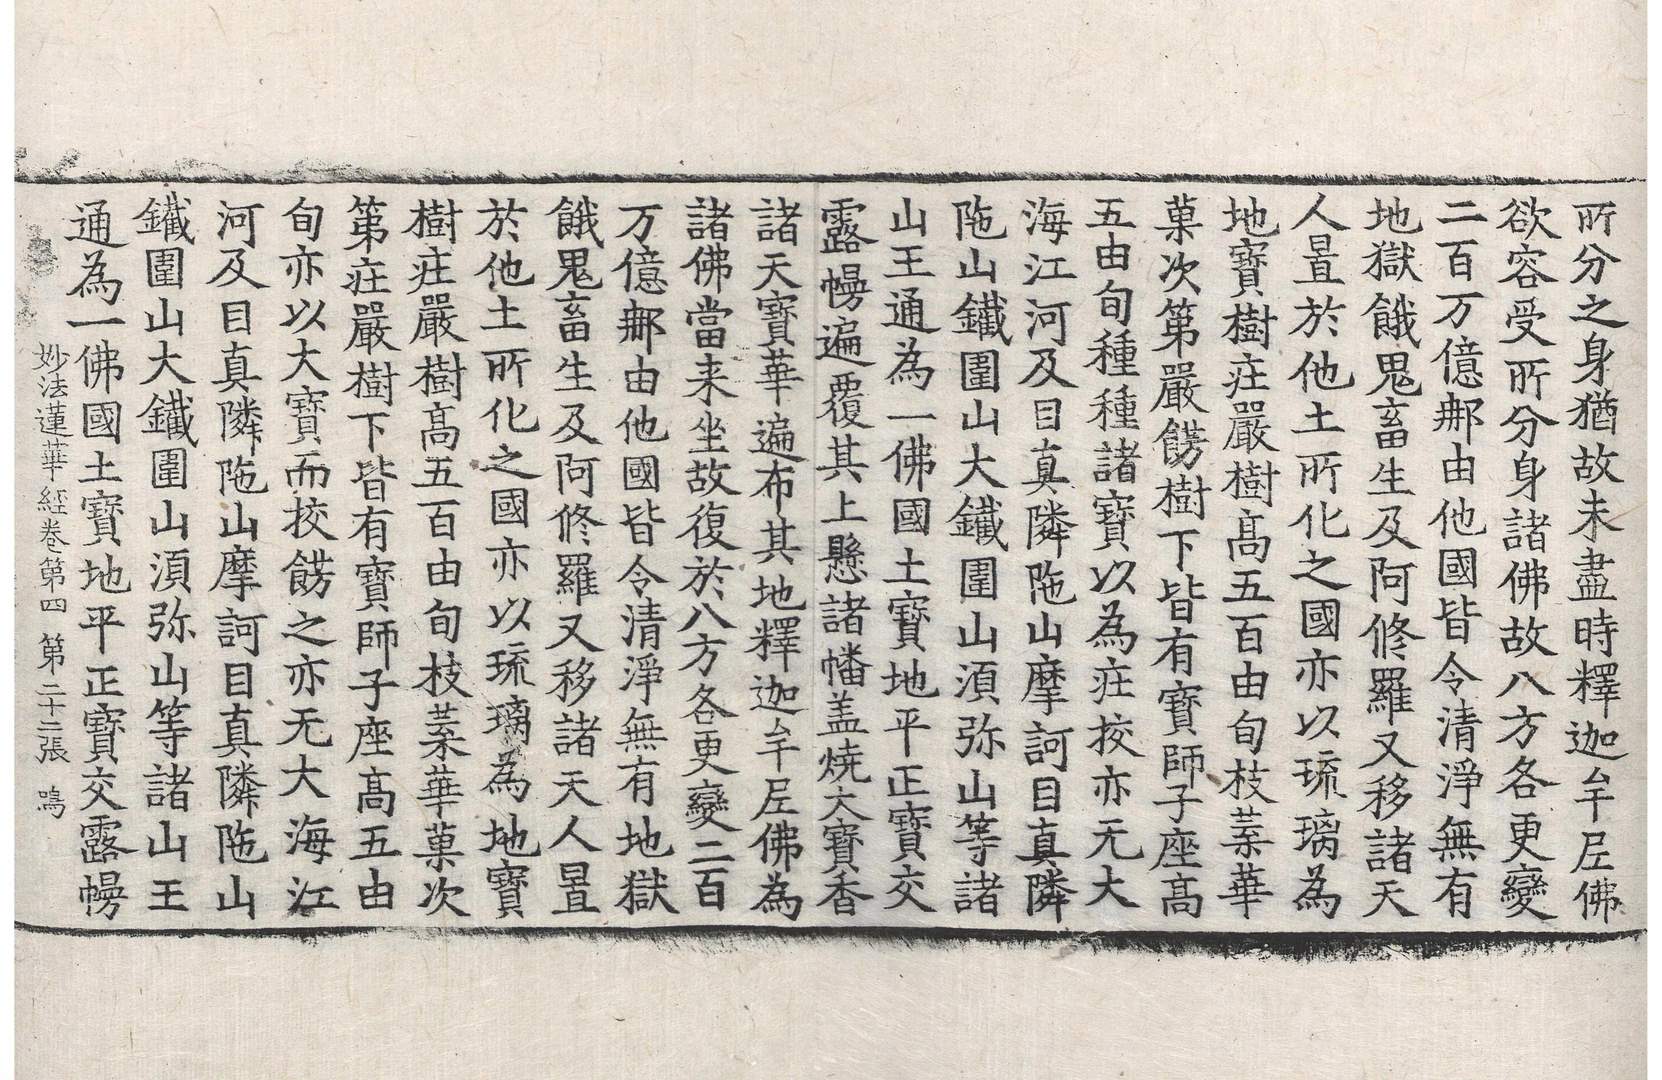 所分之身猶故未盡時釋迦牟尼佛
欲容受所分身諸佛故八方各更變
二百万億那由他國皆令清淨無有
地獄餓鬼畜生及阿修羅又移諸天
人置於他土所化之國亦以琉璃為
地寶樹莊嚴樹高五百由旬枝葉華
菓次第嚴餝樹下皆有寶師子座高
五由旬種種諸寶以為莊挍亦无大
海江河及目真隣陁山摩訶目真隣
陁山鐵圍山大鐵圍山湏弥山等諸
山王通為一佛國土寶地平正寶交
露幔遍覆其上懸諸幡盖燒大寶香
諸天寶華遍布其地釋迦牟尼佛為
諸佛當来坐故復於八方各更變二百
万億那由他國皆令清淨無有地獄
餓鬼畜生及阿修羅又移諸天人置
於他土所化之國亦以琉璃為地寶
樹莊嚴樹高五百由旬枝葉華菓次
第莊嚴樹下皆有寶師子座高五由
旬亦以大寶而挍餝之亦无大海江
河及目真隣陁山摩訶目真隣陁山
鐵圍山大鐵圍山湏弥山等諸山王
通為一佛國土寶地平正寶交露幔
妙法蓮華經卷第四 第二十二張 鳴